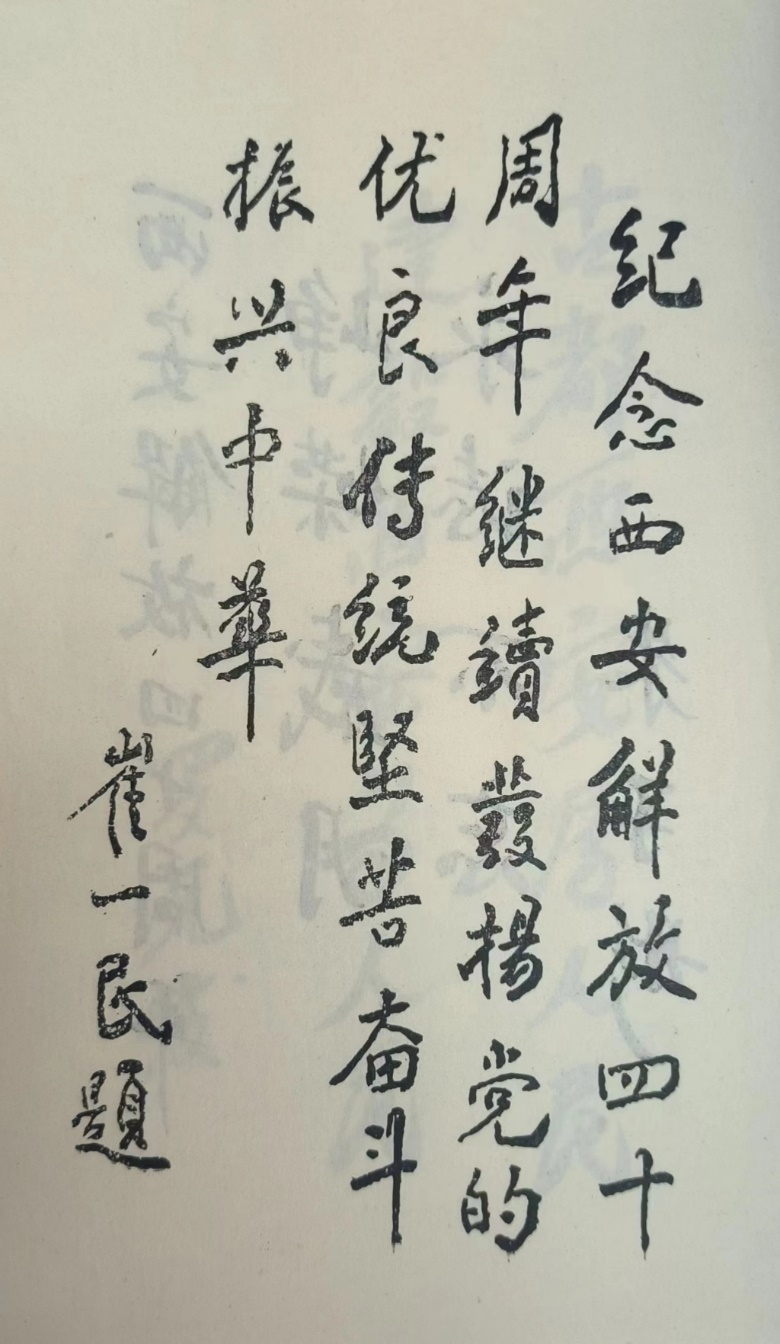 纪念西安解放四十
周年继續發揚党的
优良传统坚苦奋斗
振兴中華
崔一民题